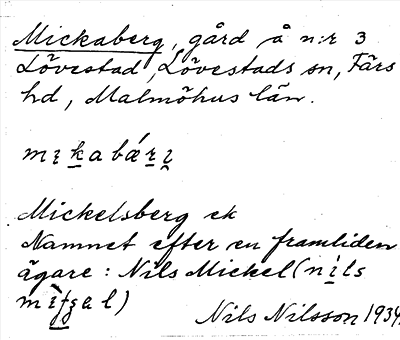 Mickaberg, gård å n:r 3
Lövestad, Lövestads sn, Färs
hd, Malmöhus län.
mɪkabǽrɪ
Mickelsberg ek
Namnet efter en framliden
ägare: Nils Mickel (nɪ́ls
Nils Nilsson 1934.